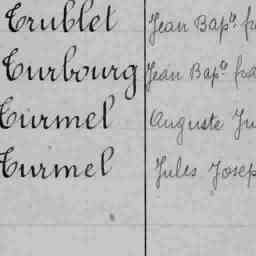 Trublet Jean Bapte fra
Turbourg Jean Bapte fra
Turmel Auguste Ju
Turmel Jules Josep